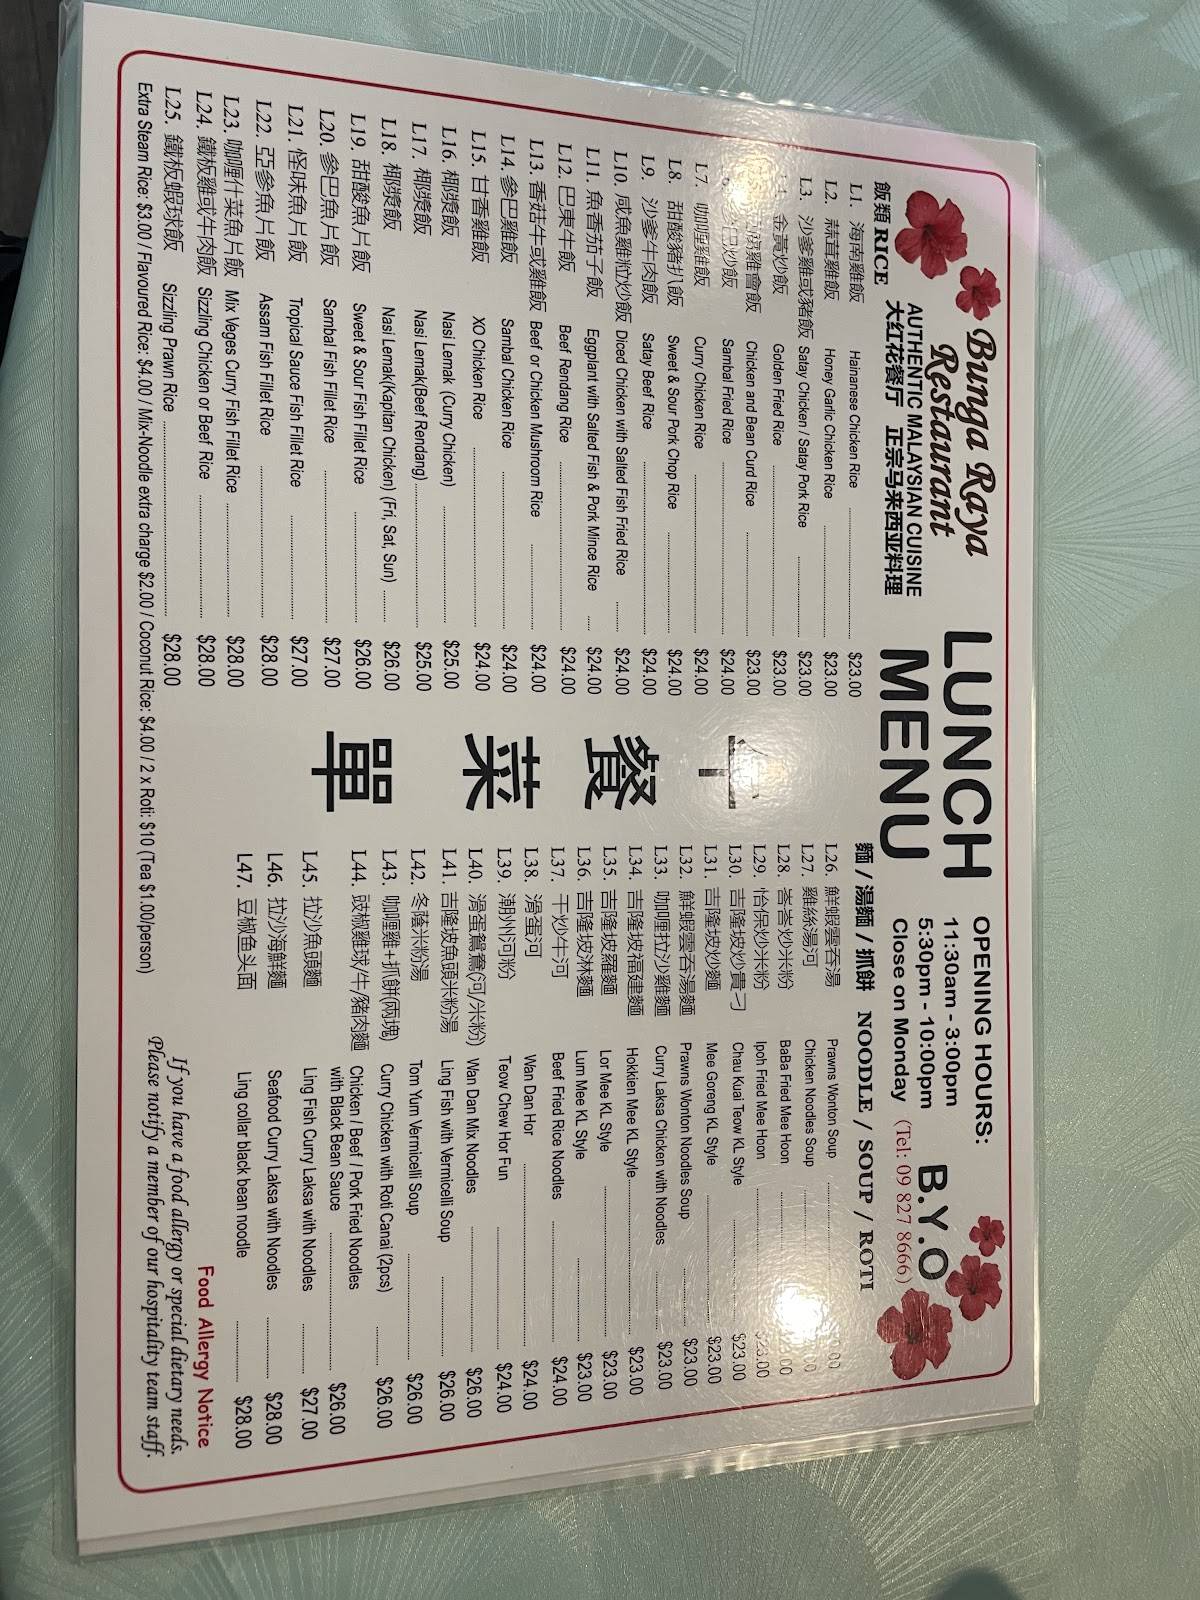 Bunga Raya
Restaurant
AUTHENTIC MALAYSIAN CUISINE
大红花餐厅 正宗马来西亚料理
LUNCH
MENU
OPENING HOURS:
11:30am - 3:00pm
5:30pm - 10:00pm
Close on Monday
B.Y.O
(Tel: 09 827 8666)
飯類 RICE
L1. 海南雞飯 Hainanese Chicken Rice $23.00
L2. 蒜茸雞飯 Honey Garlic Chicken Rice $23.00
L3. 沙爹雞或豬飯 Satay Chicken / Satay Pork Rice $23.00
金黃炒飯 Golden Fried Rice $23.00
雞會飯 Chicken and Bean Curd Rice $23.00
巴炒飯 Sambal Fried Rice $24.00
L7. 咖喱雞飯 Curry Chicken Rice $24.00
L8. 甜酸豬扒飯 Sweet & Sour Pork Chop Rice $24.00
L9. 沙爹牛肉飯 Satay Beef Rice $24.00
L10. 咸魚雞粒炒飯 Diced Chicken with Salted Fish Fried Rice $24.00
L11. 魚香茄子飯 Eggplant with Salted Fish & Pork Mince Rice $24.00
L12. 巴東牛飯 Beef Rendang Rice $24.00
L13. 香菇牛或雞飯 Beef or Chicken Mushroom Rice $24.00
L14. 參巴雞飯 Sambal Chicken Rice $24.00
L15. 甘香雞飯 XO Chicken Rice $24.00
L16. 椰漿飯 Nasi Lemak (Curry Chicken) $25.00
L17. 椰漿飯 Nasi Lemak(Beef Rendang) $25.00
L18. 椰漿飯 Nasi Lemak(Kapitan Chicken) (Fri, Sat, Sun) $26.00
L19. 甜酸魚片飯 Sweet & Sour Fish Fillet Rice $26.00
L20. 參巴魚片飯 Sambal Fish Fillet Rice $27.00
L21. 怪味魚片飯 Tropical Sauce Fish Fillet Rice $27.00
L22. 亞參魚片飯 Assam Fish Fillet Rice $28.00
L23. 咖喱什菜魚片飯 Mix Veges Curry Fish Fillet Rice $28.00
L24. 鐵板雞或牛肉飯 Sizzling Chicken or Beef Rice $28.00
L25. 鐵板蝦球飯 Sizzling Prawn Rice $28.00
午
餐
菜
單
麵 / 湯麵 / 抓餅 NOODLE / SOUP / ROTI
L26. 鮮蝦雲吞湯 Prawns Wonton Soup
L27. 雞絲湯河 Chicken Noodles Soup
L28. 峇峇炒米粉 BaBa Fried Mee Hoon
L29. 怡保炒米粉 Ipoh Fried Mee Hoon
L30. 吉隆坡炒貴刁 Chau Kuai Teow KL Style $23.00
L31. 吉隆坡炒麵 Mee Goreng KL Style $23.00
L32. 鮮蝦雲吞湯麵 Prawns Wonton Noodles Soup $23.00
L33. 咖喱拉沙雞麵 Curry Laksa Chicken with Noodles $23.00
L34. 吉隆坡福建麵 Hokkien Mee KL Style $23.00
L35. 吉隆坡羅麵 Lor Mee KL Style $23.00
L36. 吉隆坡淋麵 Lum Mee KL Style $23.00
L37. 干炒牛河 Beef Fried Rice Noodles $24.00
L38. 滑蛋河 Wan Dan Hor $24.00
L39. 潮州河粉 Teow Chew Hor Fun $24.00
L40. 滑蛋鴛鴦(河/米粉) Wan Dan Mix Noodles $26.00
L41. 吉隆坡魚頭米粉湯 Ling Fish with Vermicelli Soup $26.00
L42. 冬蔭米粉湯 Tom Yum Vermicelli Soup $26.00
L43. 咖喱雞+抓餅(兩塊) Curry Chicken with Roti Canai (2pcs) $26.00
L44. 豉椒雞球/牛/豬肉麵 Chicken / Beef / Pork Fried Noodles
with Black Bean Sauce $26.00
L45. 拉沙魚頭麵 Ling Fish Curry Laksa with Noodles $27.00
L46. 拉沙海鮮麵 Seafood Curry Laksa with Noodles $28.00
L47. 豆椒鱼头面 Ling collar black bean noodle $28.00
Extra Steam Rice: $3.00 / Flavoured Rice: $4.00 / Mix-Noodle extra charge $2.00 / Coconut Rice: $4.00 / 2 x Roti: $10 (Tea $1.00/person)
Food Allergy Notice
If you have a food allergy or special dietary needs.
Please notify a member of our hospitality team staff.